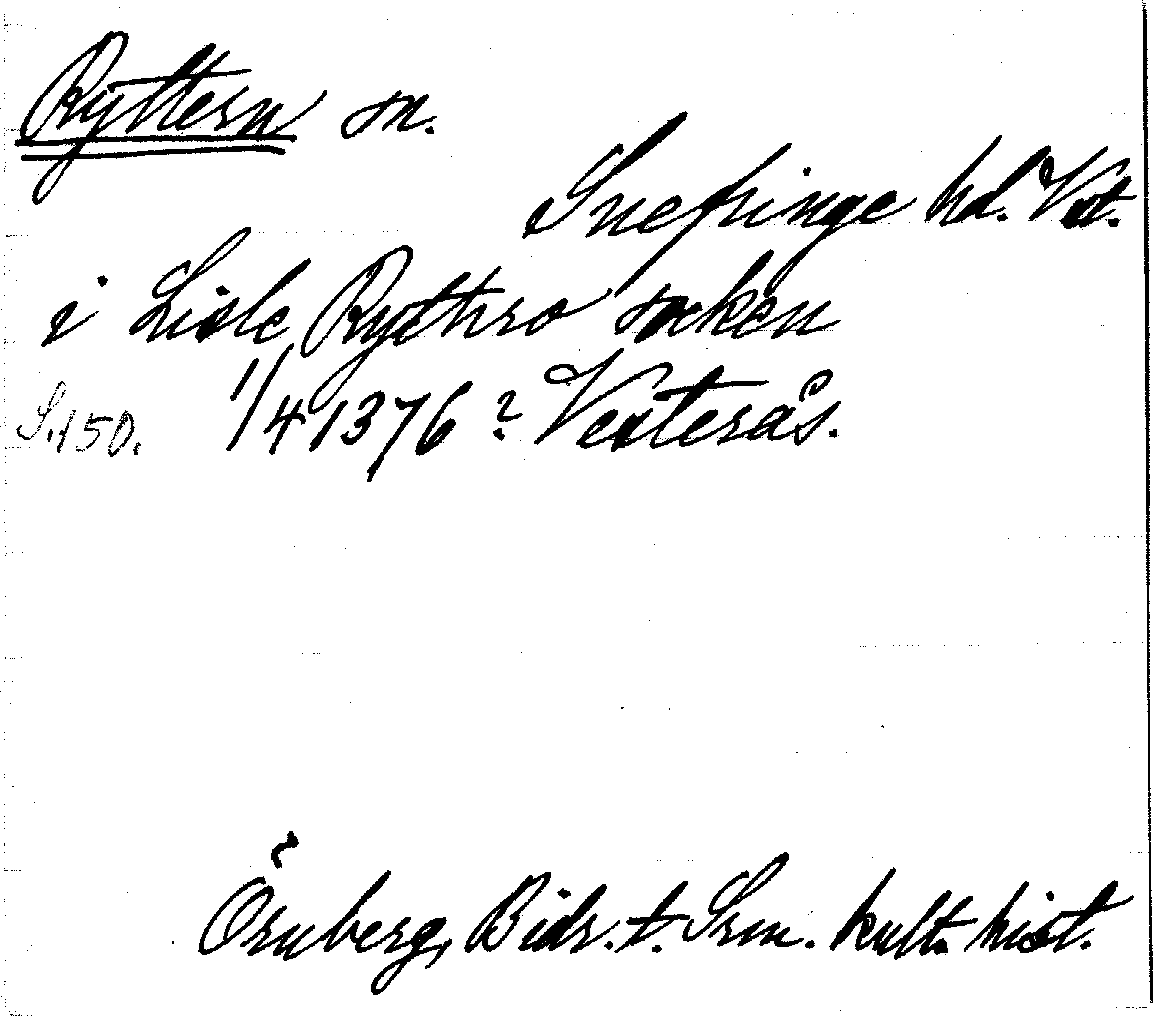 Ryttern sn.
Snefringe hd. Vst.
i Lisle Rythro soken
S. 150. 1/4 1376? Vesterås.
Örnberg, Bidr. t. Srm. kult. hist.